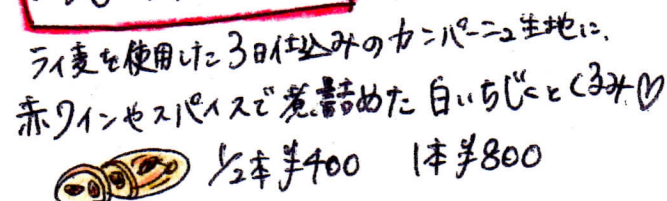 ライ麦を使用した3日仕込みのカンパーニュ生地に、
赤ワインやスパイスで煮詰めた白いちじくとくるみ♡
1/2本¥400 1本¥800